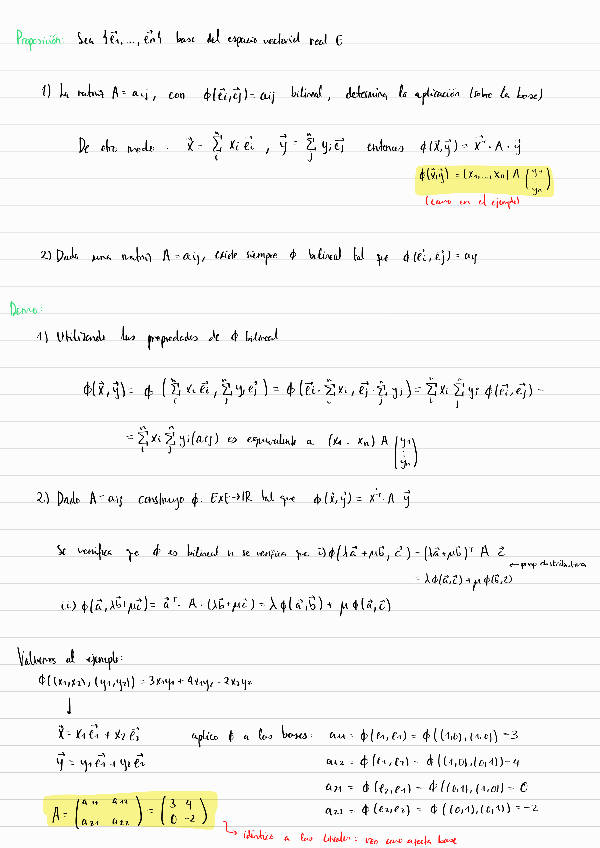 Proposición: Sea {e⃗1, ..., e⃗n} base del espacio vectorial real E
1) La matriz A = aij, con ϕ(e⃗i, e⃗j) = aij bilineal, determina la aplicación (sobre la base)
De otro modo: x⃗ = Σ_i^n xi e⃗i , y⃗ = Σ_j^n yj e⃗j entonces ϕ(x⃗, y⃗) = x⃗^T · A · y⃗
ϕ(x⃗, y⃗) = (x1, ..., xn) A (y1 ⋮ yn)
(como en el ejemplo)
2) Dada una matriz A = aij, existe siempre ϕ bilineal tal que ϕ(e⃗i, e⃗j) = aij
Demo:
1) Utilizando las propiedades de ϕ bilineal
ϕ(x⃗, y⃗) = ϕ (Σ_i^n xi e⃗i, Σ_j^n yj e⃗j) = ϕ(e⃗i · Σ_i^n xi, e⃗j · Σ_j^n yj) = Σ_i^n xi Σ_j^n yj ϕ(e⃗i, e⃗j) =
= Σ_i^n xi Σ_j^n yj (aij) es equivalente a (x1 .. xn) A (y1 ⋮ yn)
2.) Dado A = aij construyo ϕ: ExE→ℝ tal que ϕ(x⃗, y⃗) = x⃗^T · A y⃗
Se verifica que ϕ es bilineal si se verifica que i) ϕ(λa⃗ + μb⃗, c⃗) = (λa⃗ + μb⃗)^T A c⃗
← prop distributiva
= λϕ(a⃗, c⃗) + μϕ(b⃗, c⃗)
ii) ϕ(a⃗, λb⃗ + μc⃗) = a⃗^T · A · (λb⃗ + μc⃗) = λϕ(a⃗, b⃗) + μϕ(a⃗, c⃗)
Volvemos al ejemplo:
ϕ((x1, x2), (y1, y2)) = 3x1y1 + 4x1y2 - 2x2y2
↓
x⃗ = x1e⃗1 + x2e⃗2 aplico ϕ a las bases: a11 = ϕ(e1, e1) = ϕ((1,0), (1,0)) = 3
y⃗ = y1e⃗1 + y2e⃗2 a12 = ϕ(e1, e2) = ϕ((1,0), (0,1)) = 4
a21 = ϕ(e2, e1) = ϕ((0,1), (1,0)) = 0
A = (a11 a12 / a21 a22) = (3 4 / 0 -2) a21 = ϕ(e2, e2) = ϕ((0,1), (0,1)) = -2
→ idéntico a las lineales: veo como afecta base